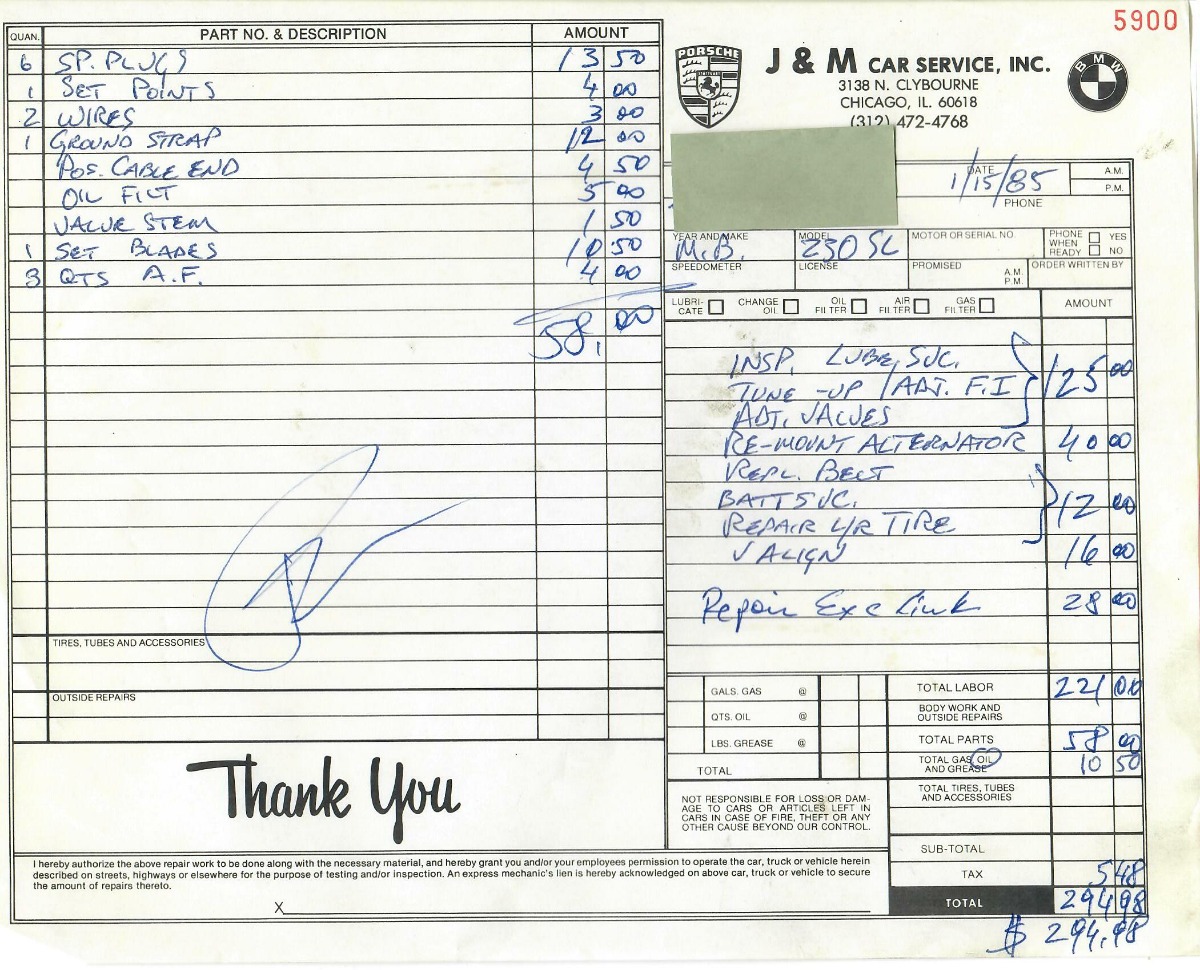 5900
QUAN. PART NO. & DESCRIPTION AMOUNT
6 SP. PLUGS 13 50
1 SET POINTS 4 00
2 WIRES 3 00
1 GROUND STRAP 12 00
POS. CABLE END 4 50
OIL FILT 5 00
VALVE STEM 1 50
1 SET BLADES 10 50
3 QTS A.F. 4 00
58,00
TIRES, TUBES AND ACCESSORIES
OUTSIDE REPAIRS
Thank You
PORSCHE
J & M CAR SERVICE, INC.
BMW
3138 N. CLYBOURNE
CHICAGO, IL. 60618
(312) 472-4768
DATE 1/15/85 A.M.
P.M.
PHONE
YEAR AND MAKE M.B. MODEL 230 SL MOTOR OR SERIAL NO. PHONE WHEN READY YES NO
SPEEDOMETER LICENSE PROMISED A.M. P.M. ORDER WRITTEN BY
LUBRI-CATE CHANGE OIL OIL FILTER AIR FILTER GAS FILTER AMOUNT
INSP. LUBE, SVC.
TUNE-UP / ADJ. F.I 125 00
ADJ. VALVES
RE-MOUNT ALTERNATOR 40 00
REPL. BELT
BATT SVC. 12 00
REPAIR L/R TIRE
V ALIGN 16 00
Repair Exc Link 28 00
GALS. GAS @ TOTAL LABOR 221 00
QTS. OIL @ BODY WORK AND OUTSIDE REPAIRS
LBS. GREASE @ TOTAL PARTS 58 00
TOTAL TOTAL GAS, OIL AND GREASE 10 50
TOTAL TIRES, TUBES AND ACCESSORIES
NOT RESPONSIBLE FOR LOSS OR DAM-
AGE TO CARS OR ARTICLES LEFT IN
CARS IN CASE OF FIRE, THEFT OR ANY
OTHER CAUSE BEYOND OUR CONTROL.
SUB-TOTAL
TAX 5 48
TOTAL 294 98
$ 294.98
I hereby authorize the above repair work to be done along with the necessary material, and hereby grant you and/or your employees permission to operate the car, truck or vehicle herein
described on streets, highways or elsewhere for the purpose of testing and/or inspection. An express mechanic's lien is hereby acknowledged on above car, truck or vehicle to secure
the amount of repairs thereto.
X